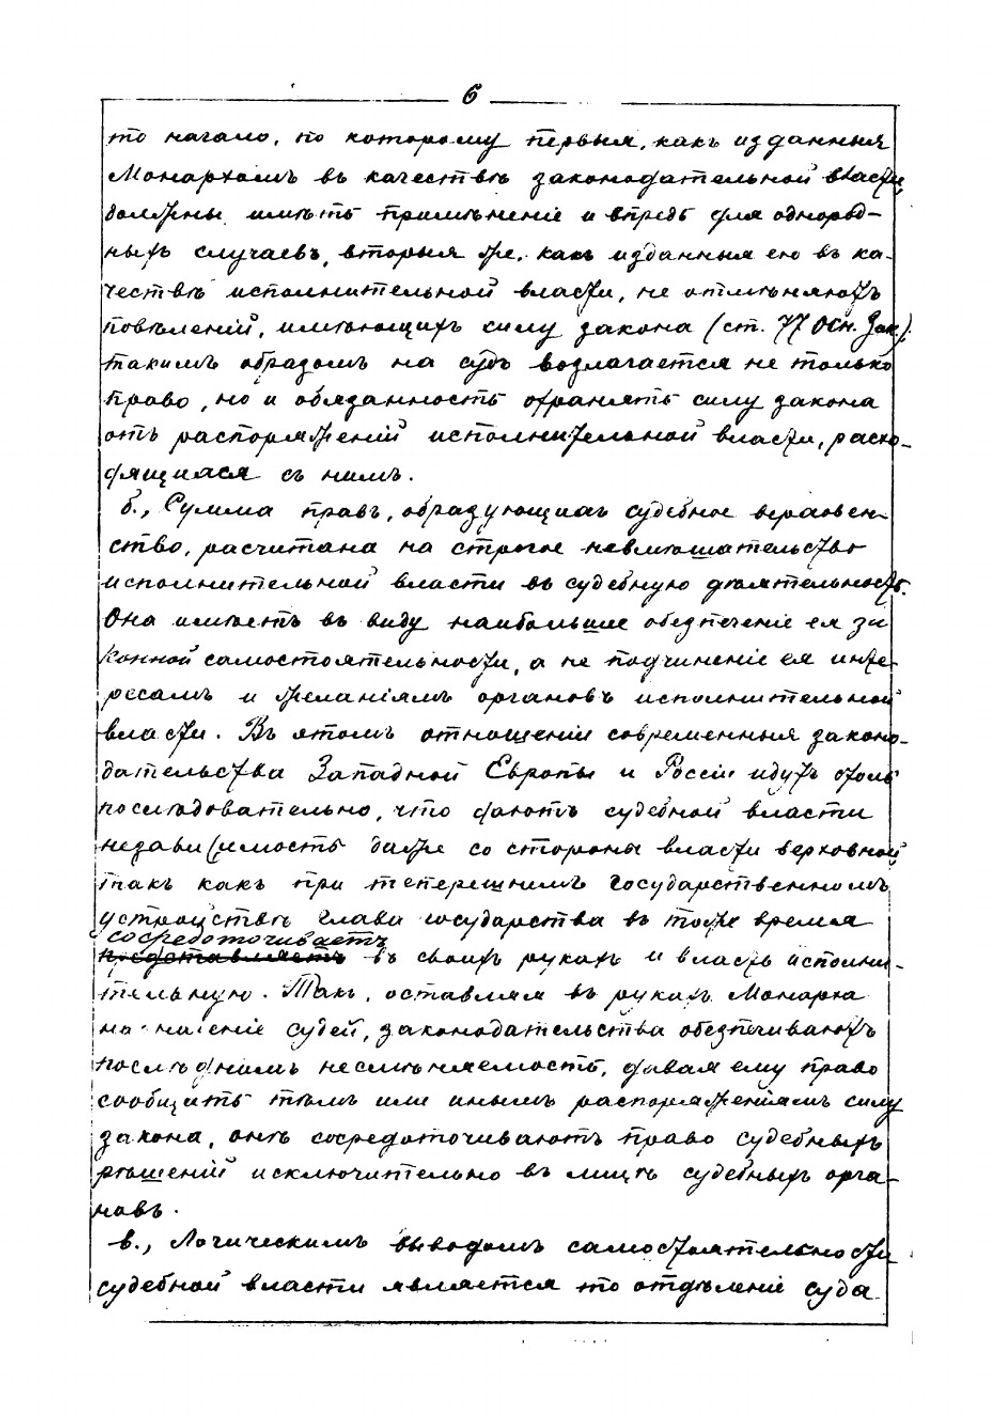 6
то начало, по которому первыя, какъ изданныя
Монархомъ въ качествѣ законодательной власти,
должны имѣть примѣненіе и впредь для однород-
ныхъ случаевъ, вторыя же, какъ изданныя ею въ ка-
чествѣ исполнительной власти, не отмѣняютъ
повелѣній, имѣющихъ силу закона (ст. 77 Осн. Зак.).
такимъ образомъ на судъ возлагается не только
право, но и обязанность охранять силу закона
отъ распоряженій исполнительной власти, расхо-
дящихся съ нимъ.
б., Сумма правъ, образующихъ судебное верховен-
ство, расчитана на строгое невмѣшательство
исполнительной власти въ судебную дѣятельность.
Она имѣетъ въ виду наибольшее обезпеченіе ея за
конной самостоятельности, а не подчиненіе ея инте-
ресамъ и желаніямъ органовъ исполнительной
власти. Въ этомъ отношеніи современныя законо-
дательства Западной Европы и Россіи идутъ столь
послѣдовательно, что даютъ судебной власти
независимость даже со стороны власти верховной
такъ какъ при теперешнемъ государственномъ
устройствѣ глава государства въ тоже время
сосредоточиваетъ
представляетъ въ своихъ рукахъ и власть исполни-
тельную. Такъ, оставляя въ рукахъ Монарха
назначеніе судей, законодательства обезпечиваютъ
послѣднимъ несмѣняемость, давая ему право
сообщать тѣмъ или инымъ распоряженіямъ силу
закона, онѣ сосредоточиваютъ право судебныхъ
рѣшеній исключительно въ лицѣ судебныхъ орга-
новъ.
в., Логическимъ выводомъ самостоятельности
судебной власти является то отдѣленіе суда